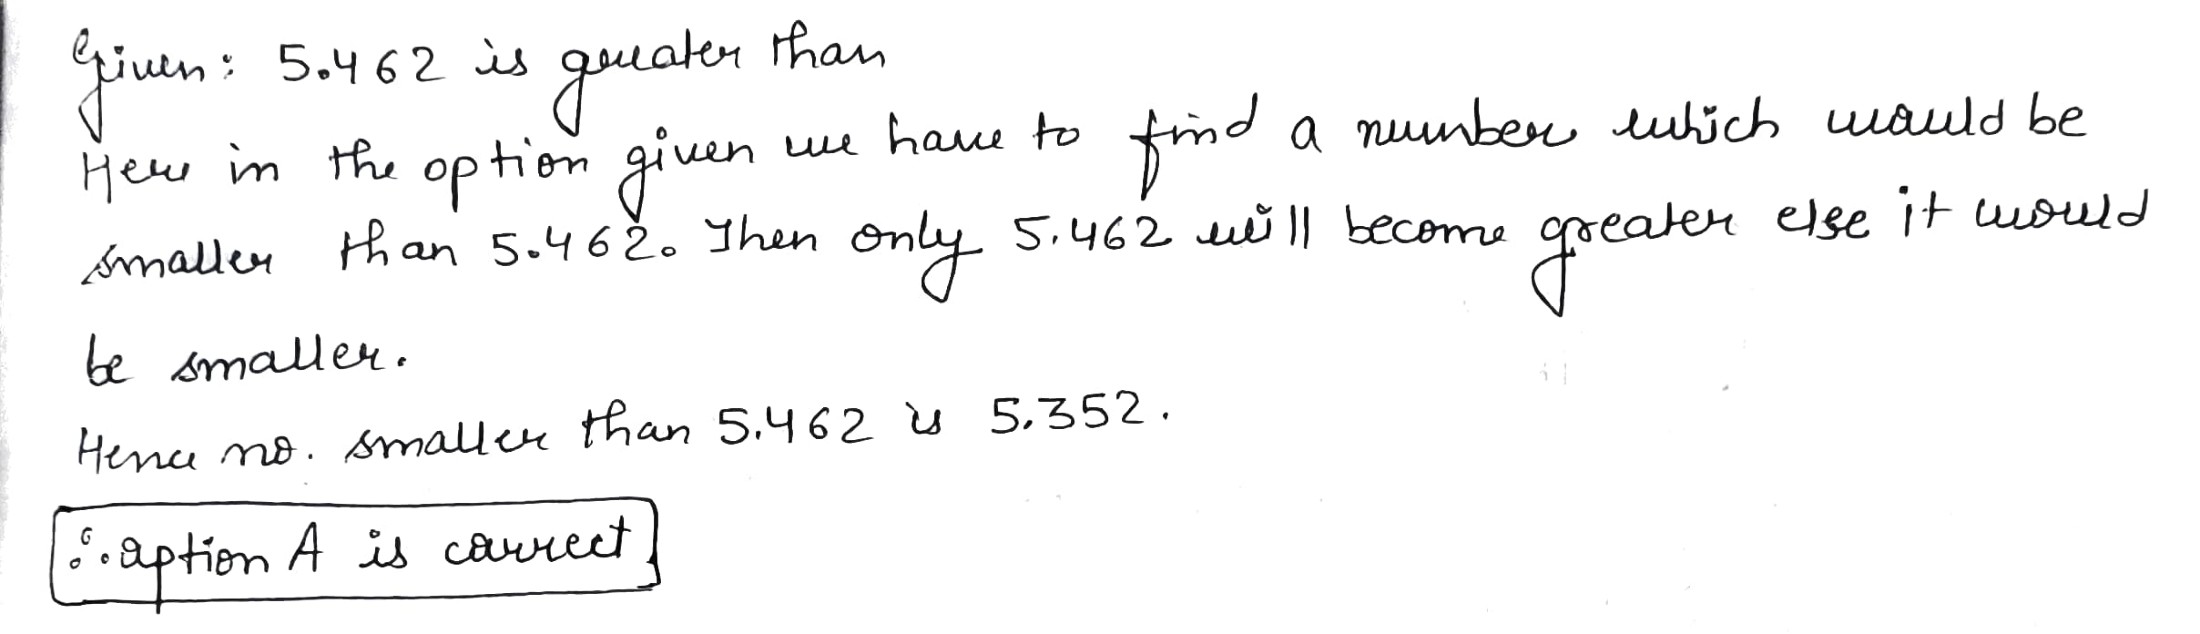 Given: 5.462 is greater than
Here in the option given we have to find a number which would be
smaller than 5.462. Then only 5.462 will become greater else it would
be smaller.
Hence no. smaller than 5.462 is 5.352.
∴ option A is correct